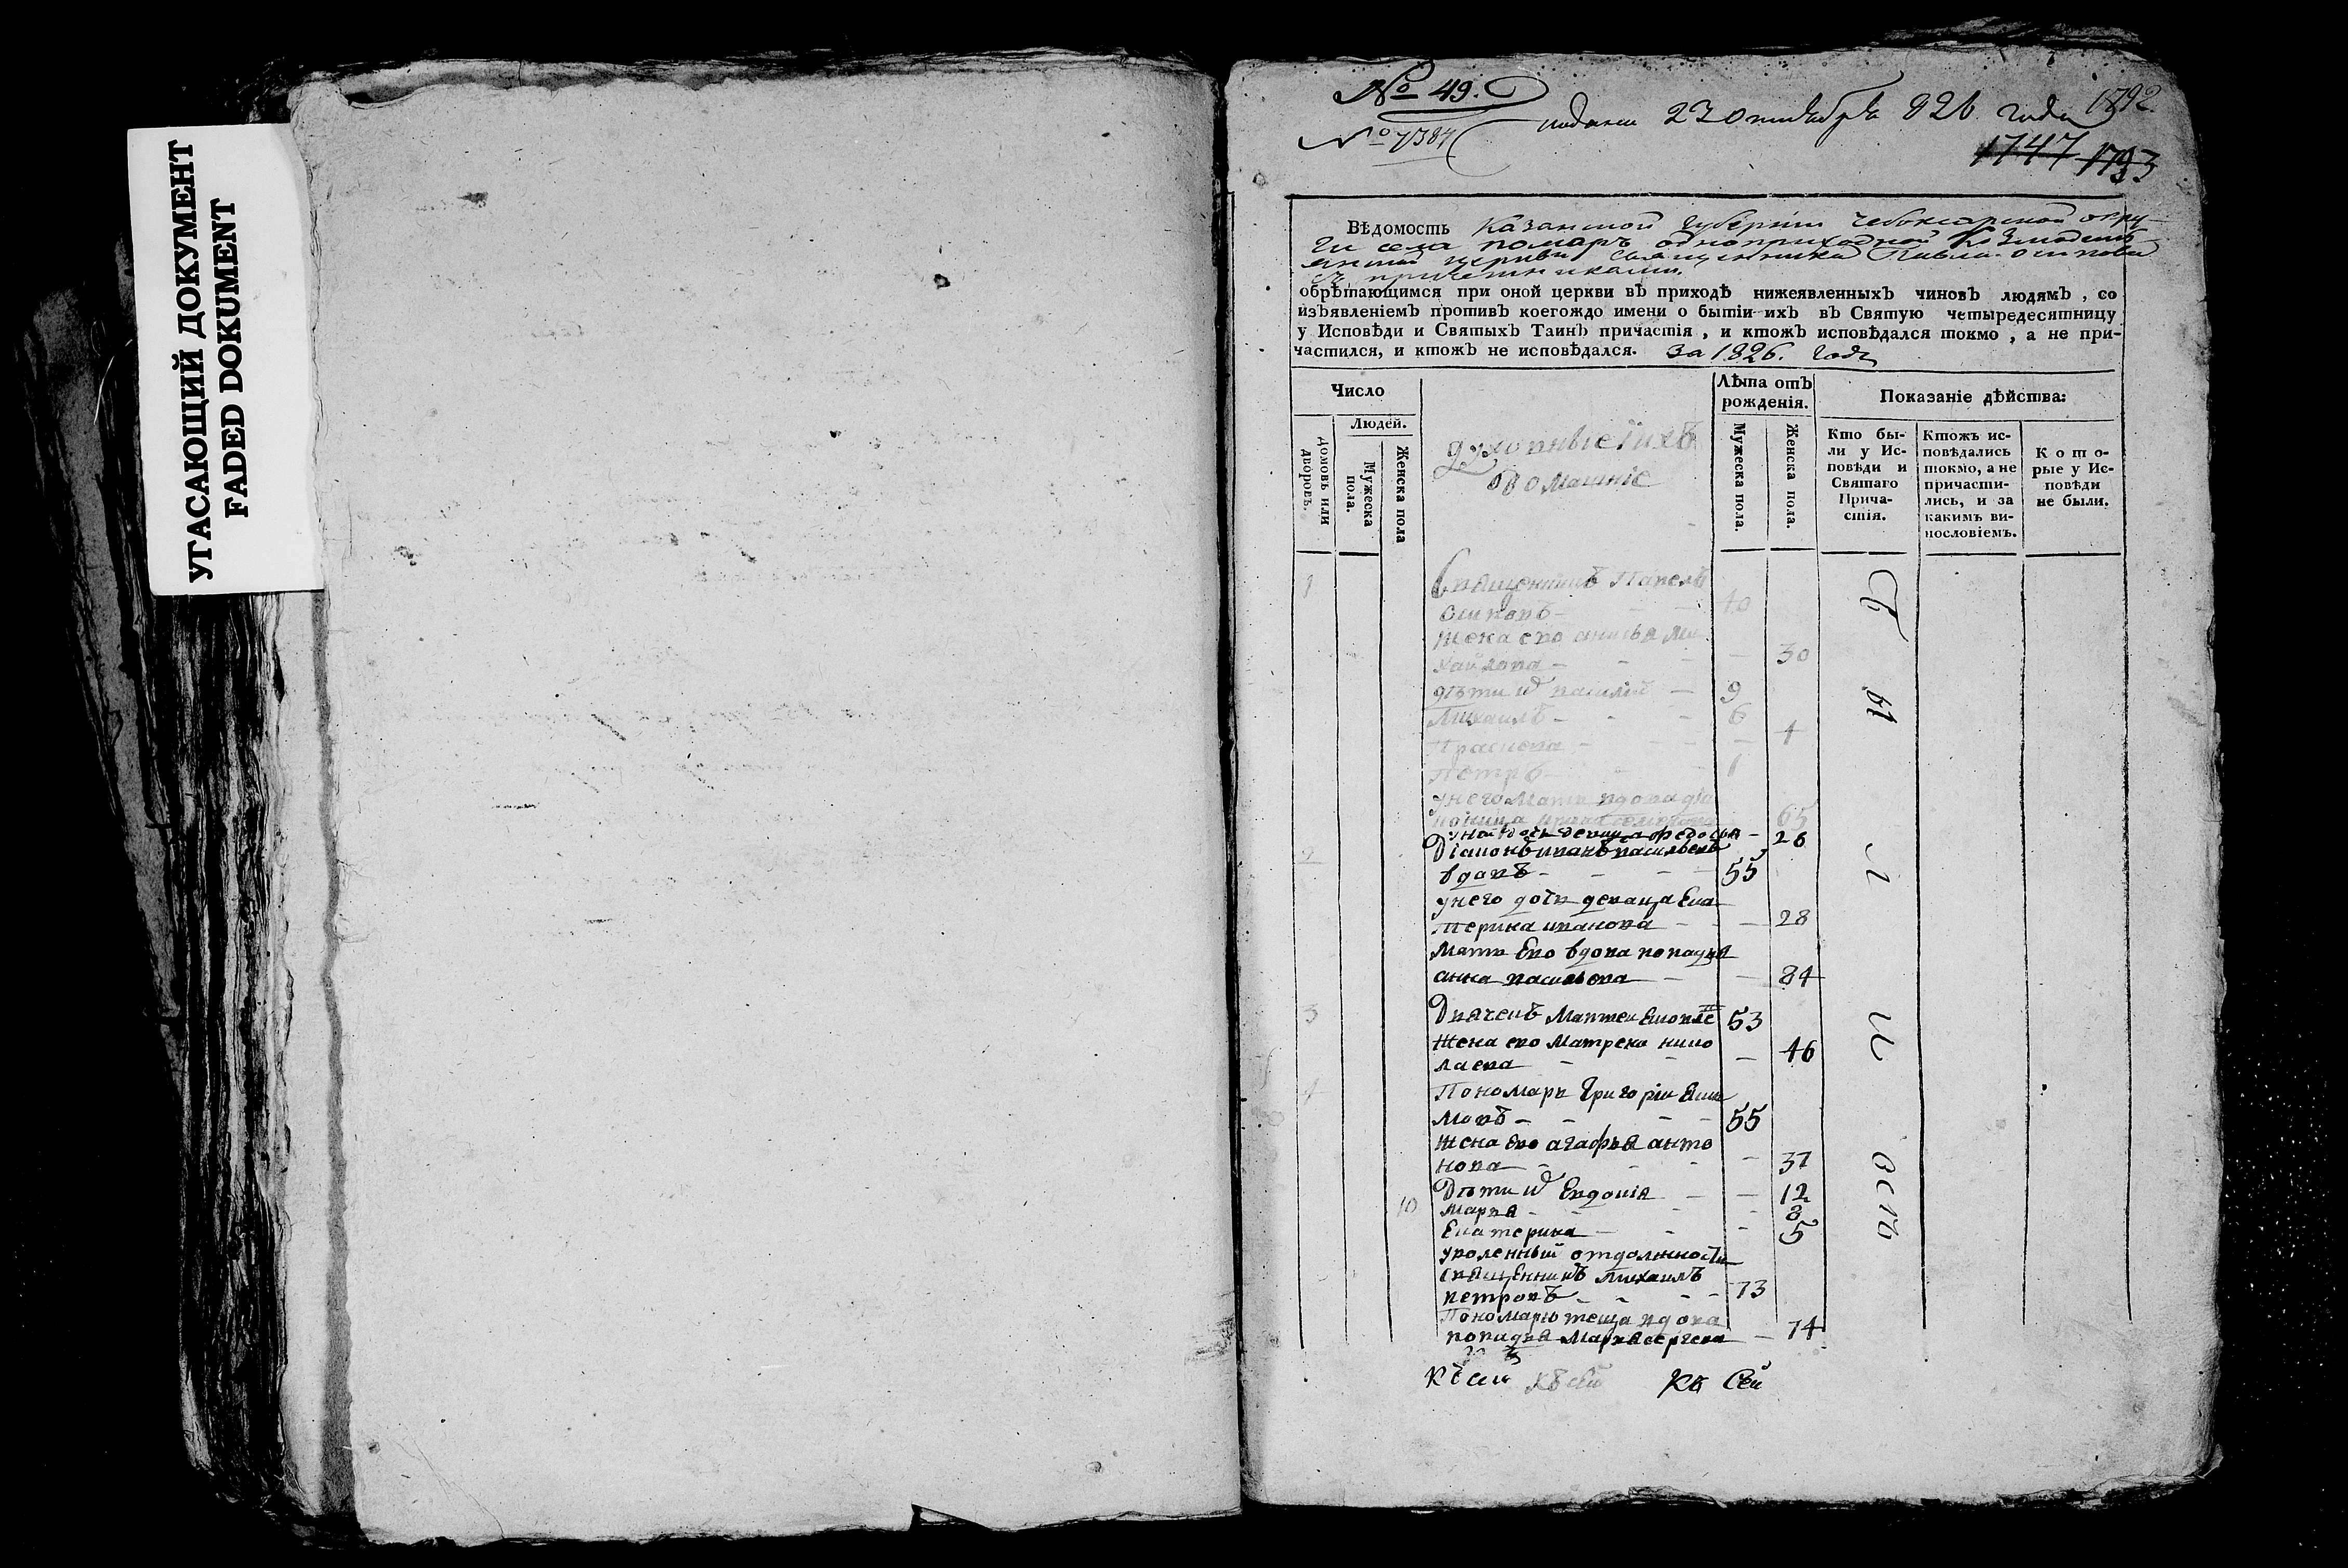 УГАСАЮЩИЙ ДОКУМЕНТ
FADED DOKUMENT
№ 49.
№ 7384
подана 23 октября 826 года 1892
1747 1793
ВѢдомость Казанской губерніи Чебоксарской окру-
ги села помаръ одноприходной Козмодемь
янской церкви священника Павла осипова
съ причетниками.
обрѣтающимся при оной церкви въ приходѣ нижеявленныхъ чиновъ людямъ, со
изъявленіемъ противъ коегождо имени о бытіи ихъ въ Святую четыредесятницу
у Исповѣди и Святыхъ Таинъ причастія, и ктожъ исповѣдался токмо, а не при-
частился, и ктожъ не исповѣдался. За 1826. годъ
Число
Людей.
домовъ или дворовъ.
Мужеска пола.
Женска пола
духовные и ихъ
домашніе
Лѣта отъ рожденія.
Мужеска пола.
Женска пола.
Показаніе дѣйства:
Кто бы-
ли у Ис-
повѣди и
Святаго
Прича-
стія.
Ктожъ ис-
повѣдались
токмо, а не
причасти-
лись, и за
какимъ ви-
нословіемъ.
Кото-
рые у Ис-
повѣди
не были.
1 Священникъ Павелъ
осиповъ - 40
жена ево анисья ми
хайлова - 30
дѣти их василій - 9
Михаилъ - 6
Прасковья - 4
Петръ - 1
у него мать вдова дья
65
у ней дочь девица федосья - 26
2 Діаконъ иванъ васильевъ
вдовъ - 55
у него дочь девица Ека
терина иванова - 28
мать Ево вдова попадья
анна васильева - 84
3 Дьячекъ Матвеи 53
жена ево Матрена нико
лаева - 46
4 Пономарь Григоріи Яки
мовъ - 55
жена ево агафья анто
нова - 37
Дѣти их Евдокія - 12
10 Марья - 8
Екатерина - 5
уволенный от должности
священникъ михаилъ
петровъ - 73
Пономарю теща вдова
попадья Марья сергеева - 74
Б
ы
л
и
всѣ
Къ сей Къ сей Къ Сей